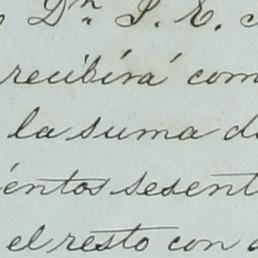 Dn. S. E.
recibirá com
la suma d
entos sesent
el resto con